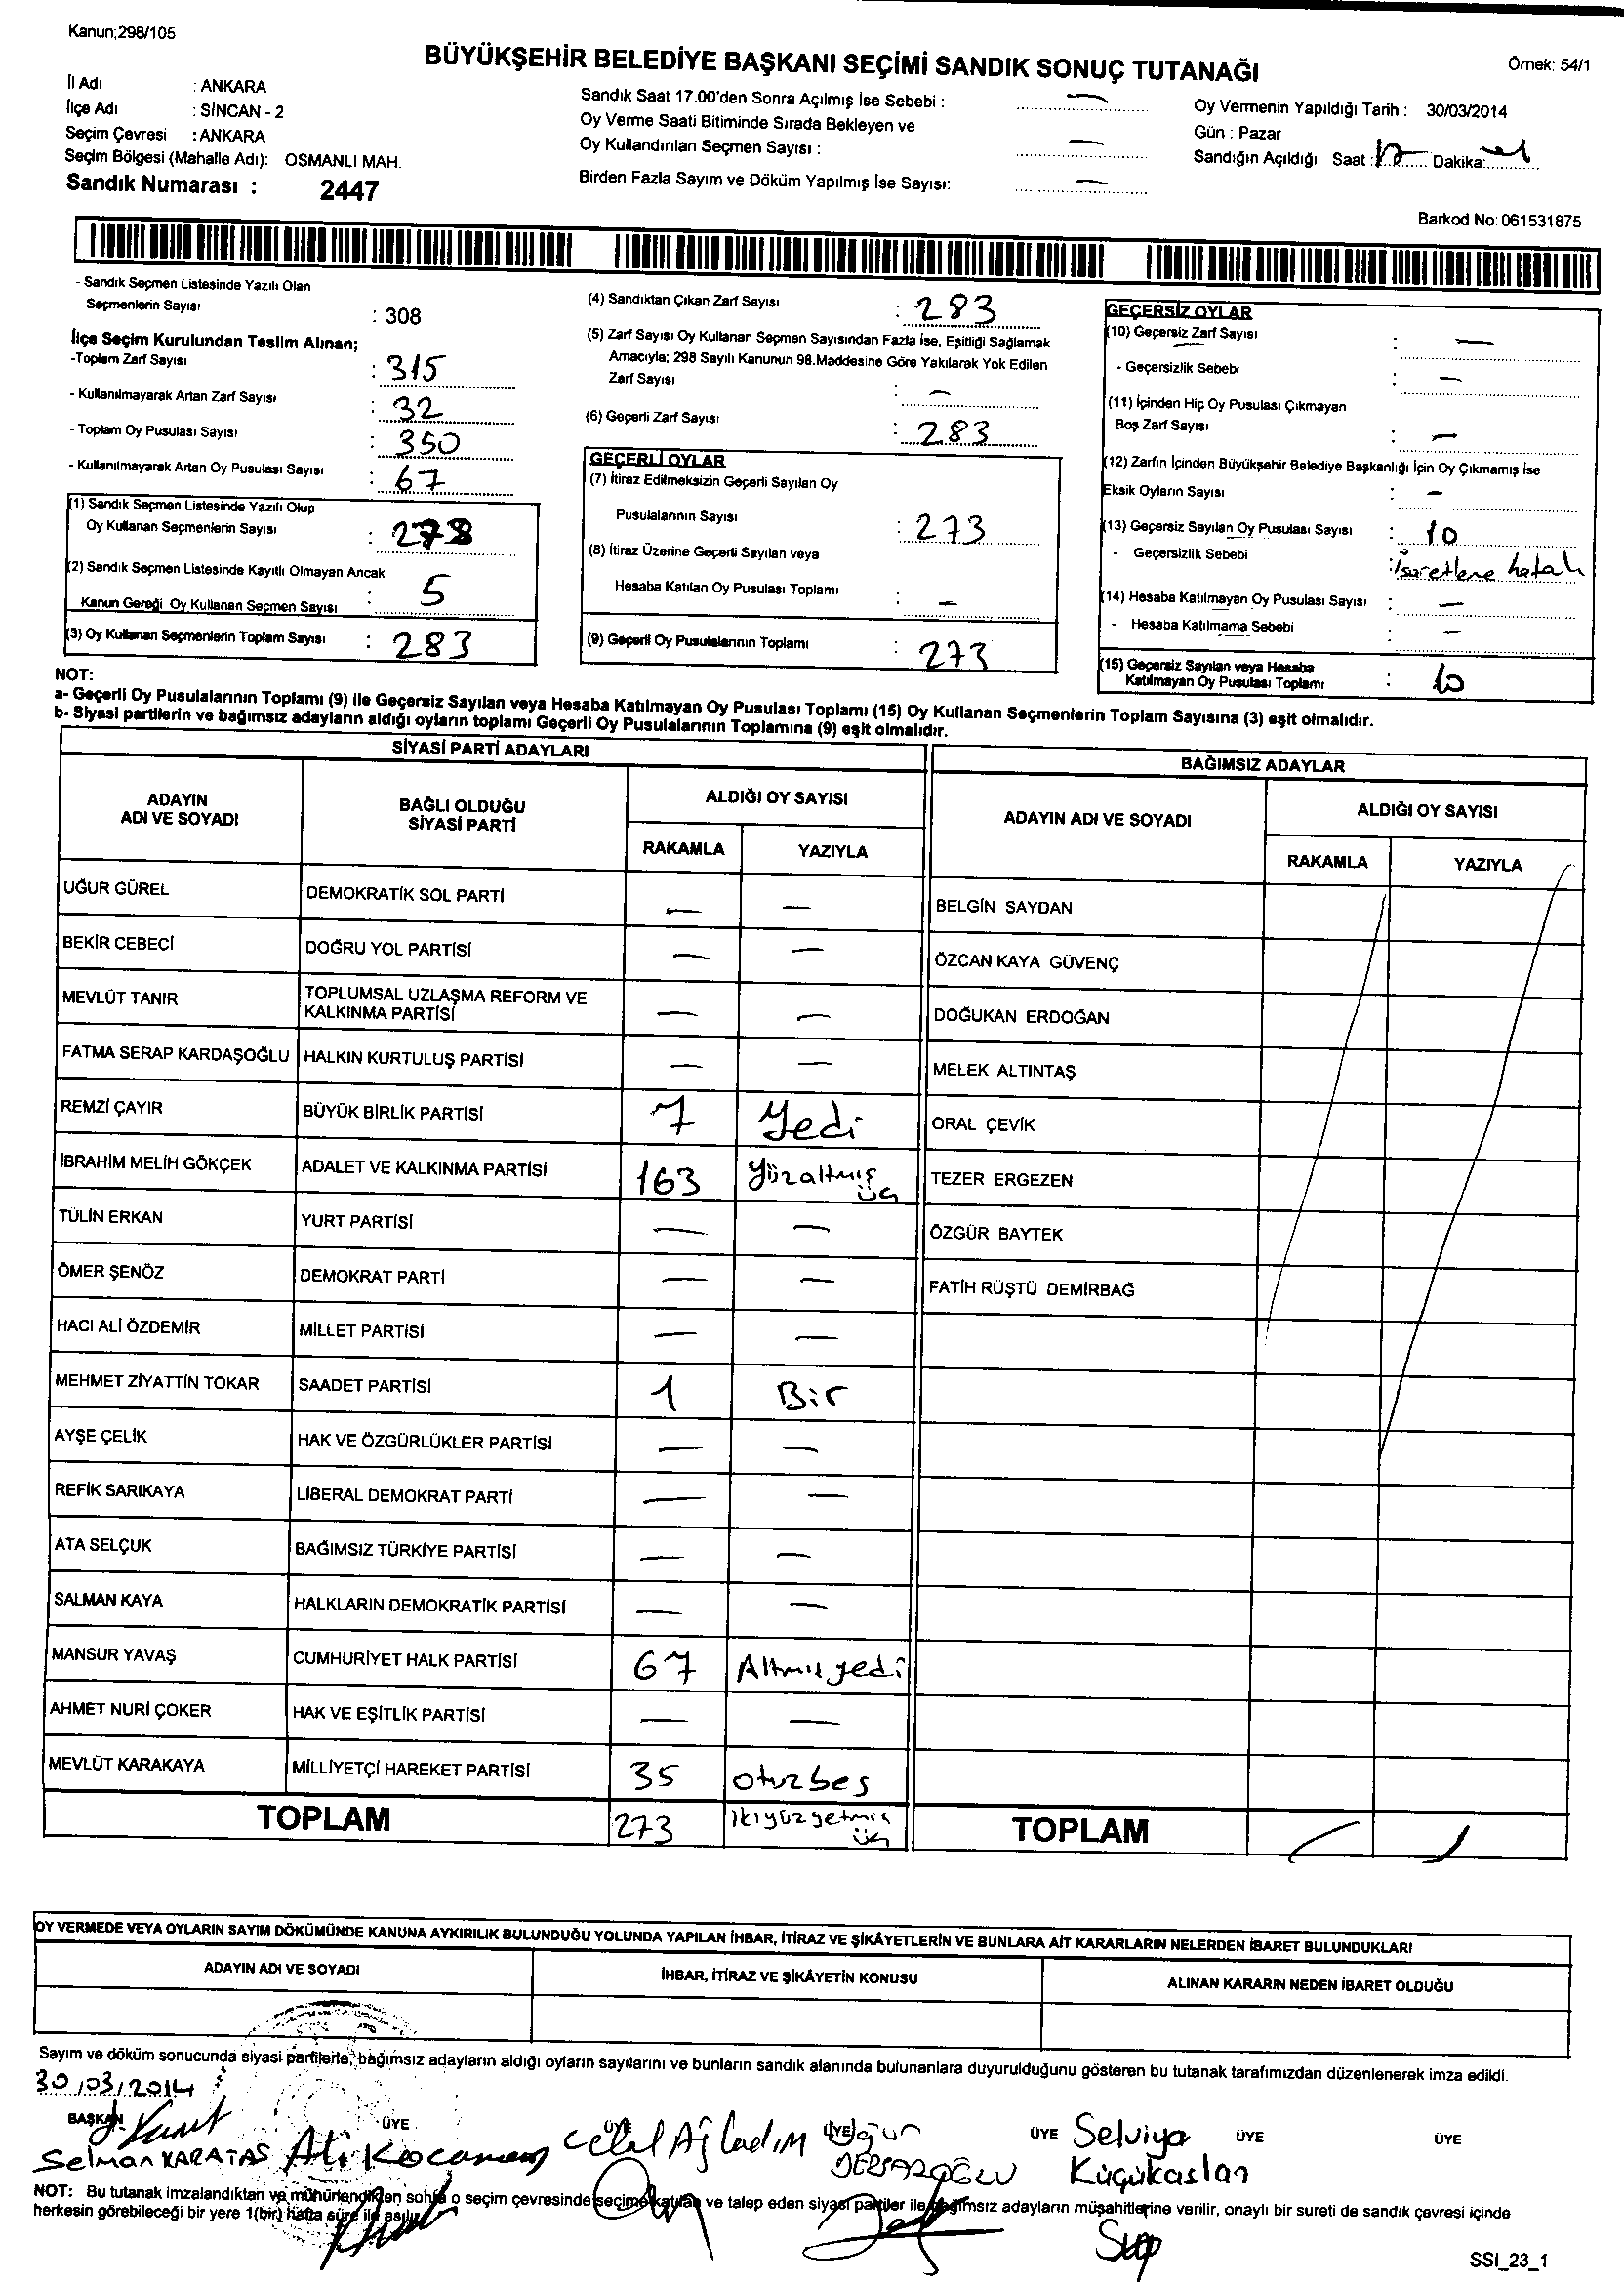 Kanun;298/105
BÜYÜKŞEHİR BELEDİYE BAŞKANI SEÇİMİ SANDIK SONUÇ TUTANAĞI
Örnek: 54/1
İl Adı : ANKARA
İlçe Adı : SİNCAN - 2
Seçim Çevresi : ANKARA
Seçim Bölgesi (Mahalle Adı): OSMANLI MAH.
Sandık Numarası : 2447
Sandık Saat 17.00'den Sonra Açılmış İse Sebebi : —
Oy Verme Saati Bitiminde Sırada Bekleyen ve
Oy Kullandırılan Seçmen Sayısı : —
Birden Fazla Sayım ve Döküm Yapılmış İse Sayısı: —
Oy Vermenin Yapıldığı Tarih : 30/03/2014
Gün : Pazar
Sandığın Açıldığı Saat : 17 Dakika:
Barkod No: 061531875
- Sandık Seçmen Listesinde Yazılı Olan
Seçmenlerin Sayısı : 308
İlçe Seçim Kurulundan Teslim Alınan;
-Toplam Zarf Sayısı : 315
- Kullanılmayarak Artan Zarf Sayısı : 32
- Toplam Oy Pusulası Sayısı : 350
- Kullanılmayarak Artan Oy Pusulası Sayısı : 67
(1) Sandık Seçmen Listesinde Yazılı Olup
Oy Kullanan Seçmenlerin Sayısı : 278
(2) Sandık Seçmen Listesinde Kayıtlı Olmayan Ancak
Kanun Gereği Oy Kullanan Seçmen Sayısı : 5
(3) Oy Kullanan Seçmenlerin Toplam Sayısı : 283
(4) Sandıktan Çıkan Zarf Sayısı : 283
(5) Zarf Sayısı Oy Kullanan Seçmen Sayısından Fazla İse, Eşitliği Sağlamak
Amacıyla; 298 Sayılı Kanunun 98.Maddesine Göre Yakılarak Yok Edilen
Zarf Sayısı : —
(6) Geçerli Zarf Sayısı : 283
GEÇERLİ OYLAR
(7) İtiraz Edilmeksizin Geçerli Sayılan Oy
Pusulalarının Sayısı : 273
(8) İtiraz Üzerine Geçerli Sayılan veya
Hesaba Katılan Oy Pusulası Toplamı : —
(9) Geçerli Oy Pusulalarının Toplamı : 273
GEÇERSİZ OYLAR
(10) Geçersiz Zarf Sayısı : —
- Geçersizlik Sebebi : —
(11) İçinden Hiç Oy Pusulası Çıkmayan
Boş Zarf Sayısı : —
(12) Zarfın İçinden Büyükşehir Belediye Başkanlığı İçin Oy Çıkmamış İse
Eksik Oyların Sayısı : —
(13) Geçersiz Sayılan Oy Pusulası Sayısı : 10
- Geçersizlik Sebebi : İşaretleme hatalı
(14) Hesaba Katılmayan Oy Pusulası Sayısı : —
- Hesaba Katılmama Sebebi : —
(15) Geçersiz Sayılan veya Hesaba
Katılmayan Oy Pusulası Toplamı : 10
NOT:
a- Geçerli Oy Pusulalarının Toplamı (9) ile Geçersiz Sayılan veya Hesaba Katılmayan Oy Pusulası Toplamı (15) Oy Kullanan Seçmenlerin Toplam Sayısına (3) eşit olmalıdır.
b- Siyasi partilerin ve bağımsız adayların aldığı oyların toplamı Geçerli Oy Pusulalarının Toplamına (9) eşit olmalıdır.
SİYASİ PARTİ ADAYLARI
ADAYIN ADI VE SOYADI
BAĞLI OLDUĞU SİYASİ PARTİ
ALDIĞI OY SAYISI
RAKAMLA YAZIYLA
UĞUR GÜREL DEMOKRATİK SOL PARTİ — —
BEKİR CEBECİ DOĞRU YOL PARTİSİ — —
MEVLÜT TANIR TOPLUMSAL UZLAŞMA REFORM VE KALKINMA PARTİSİ — —
FATMA SERAP KARDAŞOĞLU HALKIN KURTULUŞ PARTİSİ — —
REMZİ ÇAYIR BÜYÜK BİRLİK PARTİSİ 7 Yedi
İBRAHİM MELİH GÖKÇEK ADALET VE KALKINMA PARTİSİ 163 Yüzaltmış üç
TÜLİN ERKAN YURT PARTİSİ — —
ÖMER ŞENÖZ DEMOKRAT PARTİ — —
HACI ALİ ÖZDEMİR MİLLET PARTİSİ — —
MEHMET ZİYATTİN TOKAR SAADET PARTİSİ 1 Bir
AYŞE ÇELİK HAK VE ÖZGÜRLÜKLER PARTİSİ — —
REFİK SARIKAYA LİBERAL DEMOKRAT PARTİ — —
ATA SELÇUK BAĞIMSIZ TÜRKİYE PARTİSİ — —
SALMAN KAYA HALKLARIN DEMOKRATİK PARTİSİ — —
MANSUR YAVAŞ CUMHURİYET HALK PARTİSİ 67 Altmış yedi
AHMET NURİ ÇOKER HAK VE EŞİTLİK PARTİSİ — —
MEVLÜT KARAKAYA MİLLİYETÇİ HAREKET PARTİSİ 35 otuzbeş
TOPLAM 273 ikiyüzyetmiş üç
BAĞIMSIZ ADAYLAR
ADAYIN ADI VE SOYADI
ALDIĞI OY SAYISI
RAKAMLA YAZIYLA
BELGİN SAYDAN
ÖZCAN KAYA GÜVENÇ
DOĞUKAN ERDOĞAN
MELEK ALTINTAŞ
ORAL ÇEVİK
TEZER ERGEZEN
ÖZGÜR BAYTEK
FATİH RÜŞTÜ DEMİRBAĞ
TOPLAM
OY VERMEDE VEYA OYLARIN SAYIM DÖKÜMÜNDE KANUNA AYKIRILIK BULUNDUĞU YOLUNDA YAPILAN İHBAR, İTİRAZ VE ŞİKÂYETLERİN VE BUNLARA AİT KARARLARIN NELERDEN İBARET BULUNDUKLARI
ADAYIN ADI VE SOYADI
İHBAR, İTİRAZ VE ŞİKÂYETİN KONUSU
ALINAN KARARIN NEDEN İBARET OLDUĞU
Sayım ve döküm sonucunda siyasi partilerle, bağımsız adayların aldığı oyların sayılarını ve bunların sandık alanında bulunanlara duyurulduğunu gösteren bu tutanak tarafımızdan düzenlenerek imza edildi.
30/03/2014
BAŞKAN ÜYE ÜYE ÜYE ÜYE ÜYE ÜYE
Selman KARATAŞ Ali Kocaman Celal Ağladım Selviye
Küçükaslan
NOT: Bu tutanak imzalandıktan ve mühürlendikten sonra o seçim çevresinde seçime katılan ve talep eden siyasi partiler ile bağımsız adayların müşahitlerine verilir, onaylı bir sureti de sandık çevresi içinde
herkesin görebileceği bir yere 1(bir) hafta süre ile asılır.
SSI_23_1